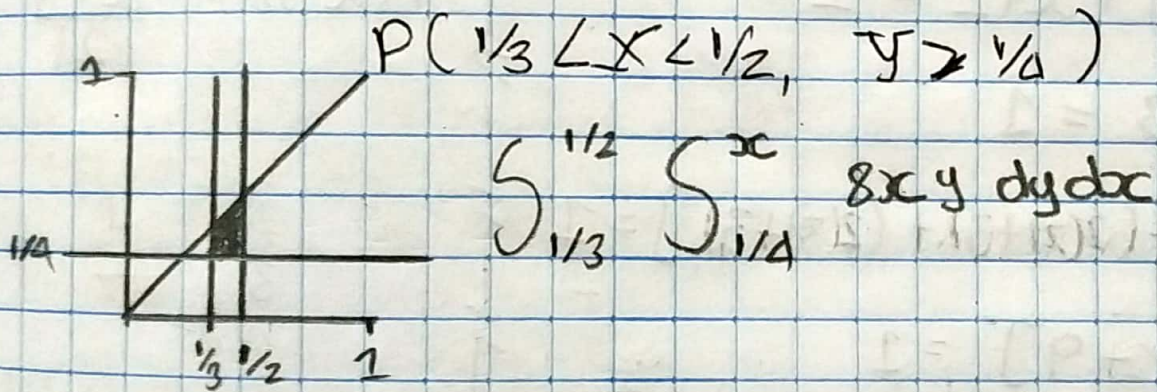 P( 1/3 < X < 1/2, Y > 1/4 )
1
∫_{1/3}^{1/2} ∫_{1/4}^{x} 8xy dy dx
1/4
1/3 1/2 1